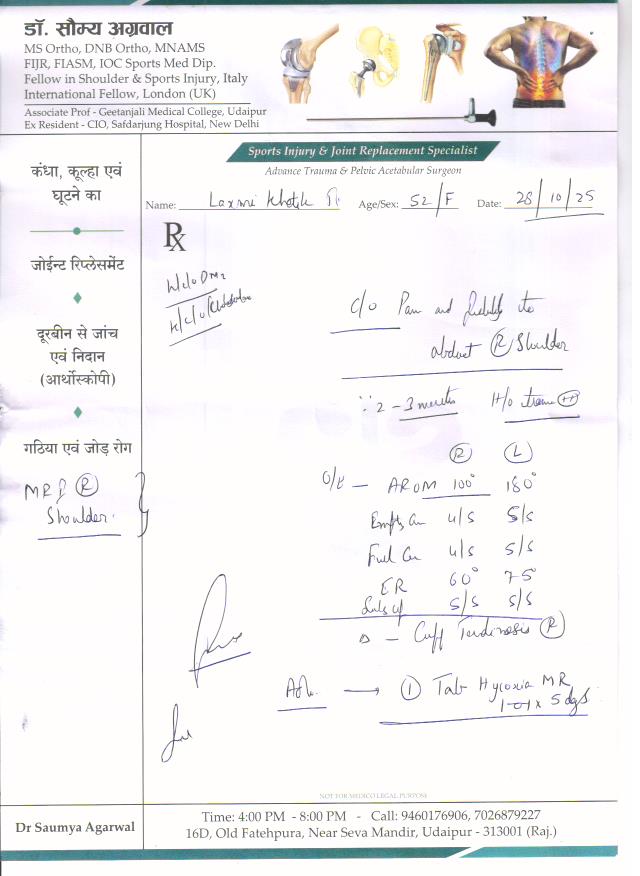 डॉ. सौम्य अग्रवाल
MS Ortho, DNB Ortho, MNAMS
FIJR, FIASM, IOC Sports Med Dip.
Fellow in Shoulder & Sports Injury, Italy
International Fellow, London (UK)
Associate Prof - Geetanjali Medical College, Udaipur
Ex Resident - CIO, Safdarjung Hospital, New Delhi
Sports Injury & Joint Replacement Specialist
Advance Trauma & Pelvic Acetabular Surgeon
Name: Laxmi Khatik Age/Sex: 52/F Date: 28/10/25
Rx
कंधा, कूल्हा एवं
घूटने का
जोईन्ट रिप्लेसमेंट
दूरबीन से जांच
एवं निदान
(आर्थोस्कोपी)
गठिया एवं जोड़ रोग
MRI (R)
Shoulder
K/c/o DM2
K/c/o
c/o Pain and to
abduct (R) Shoulder
∵ 2 - 3 months H/o trauma
(R) (L)
O/E - AROM 100° 180°
Empty Can 4/5 5/5
Full Can 4/5 5/5
ER 60° 75°
5/5 5/5
Δ - Cuff Tendinosis (R)
Adv. → (1) Tab Hycoxia MR
1-0-1 x 5 dys
NOT FOR MEDICO LEGAL PURPOSE
Dr Saumya Agarwal
Time: 4:00 PM - 8:00 PM - Call: 9460176906, 7026879227
16D, Old Fatehpura, Near Seva Mandir, Udaipur - 313001 (Raj.)